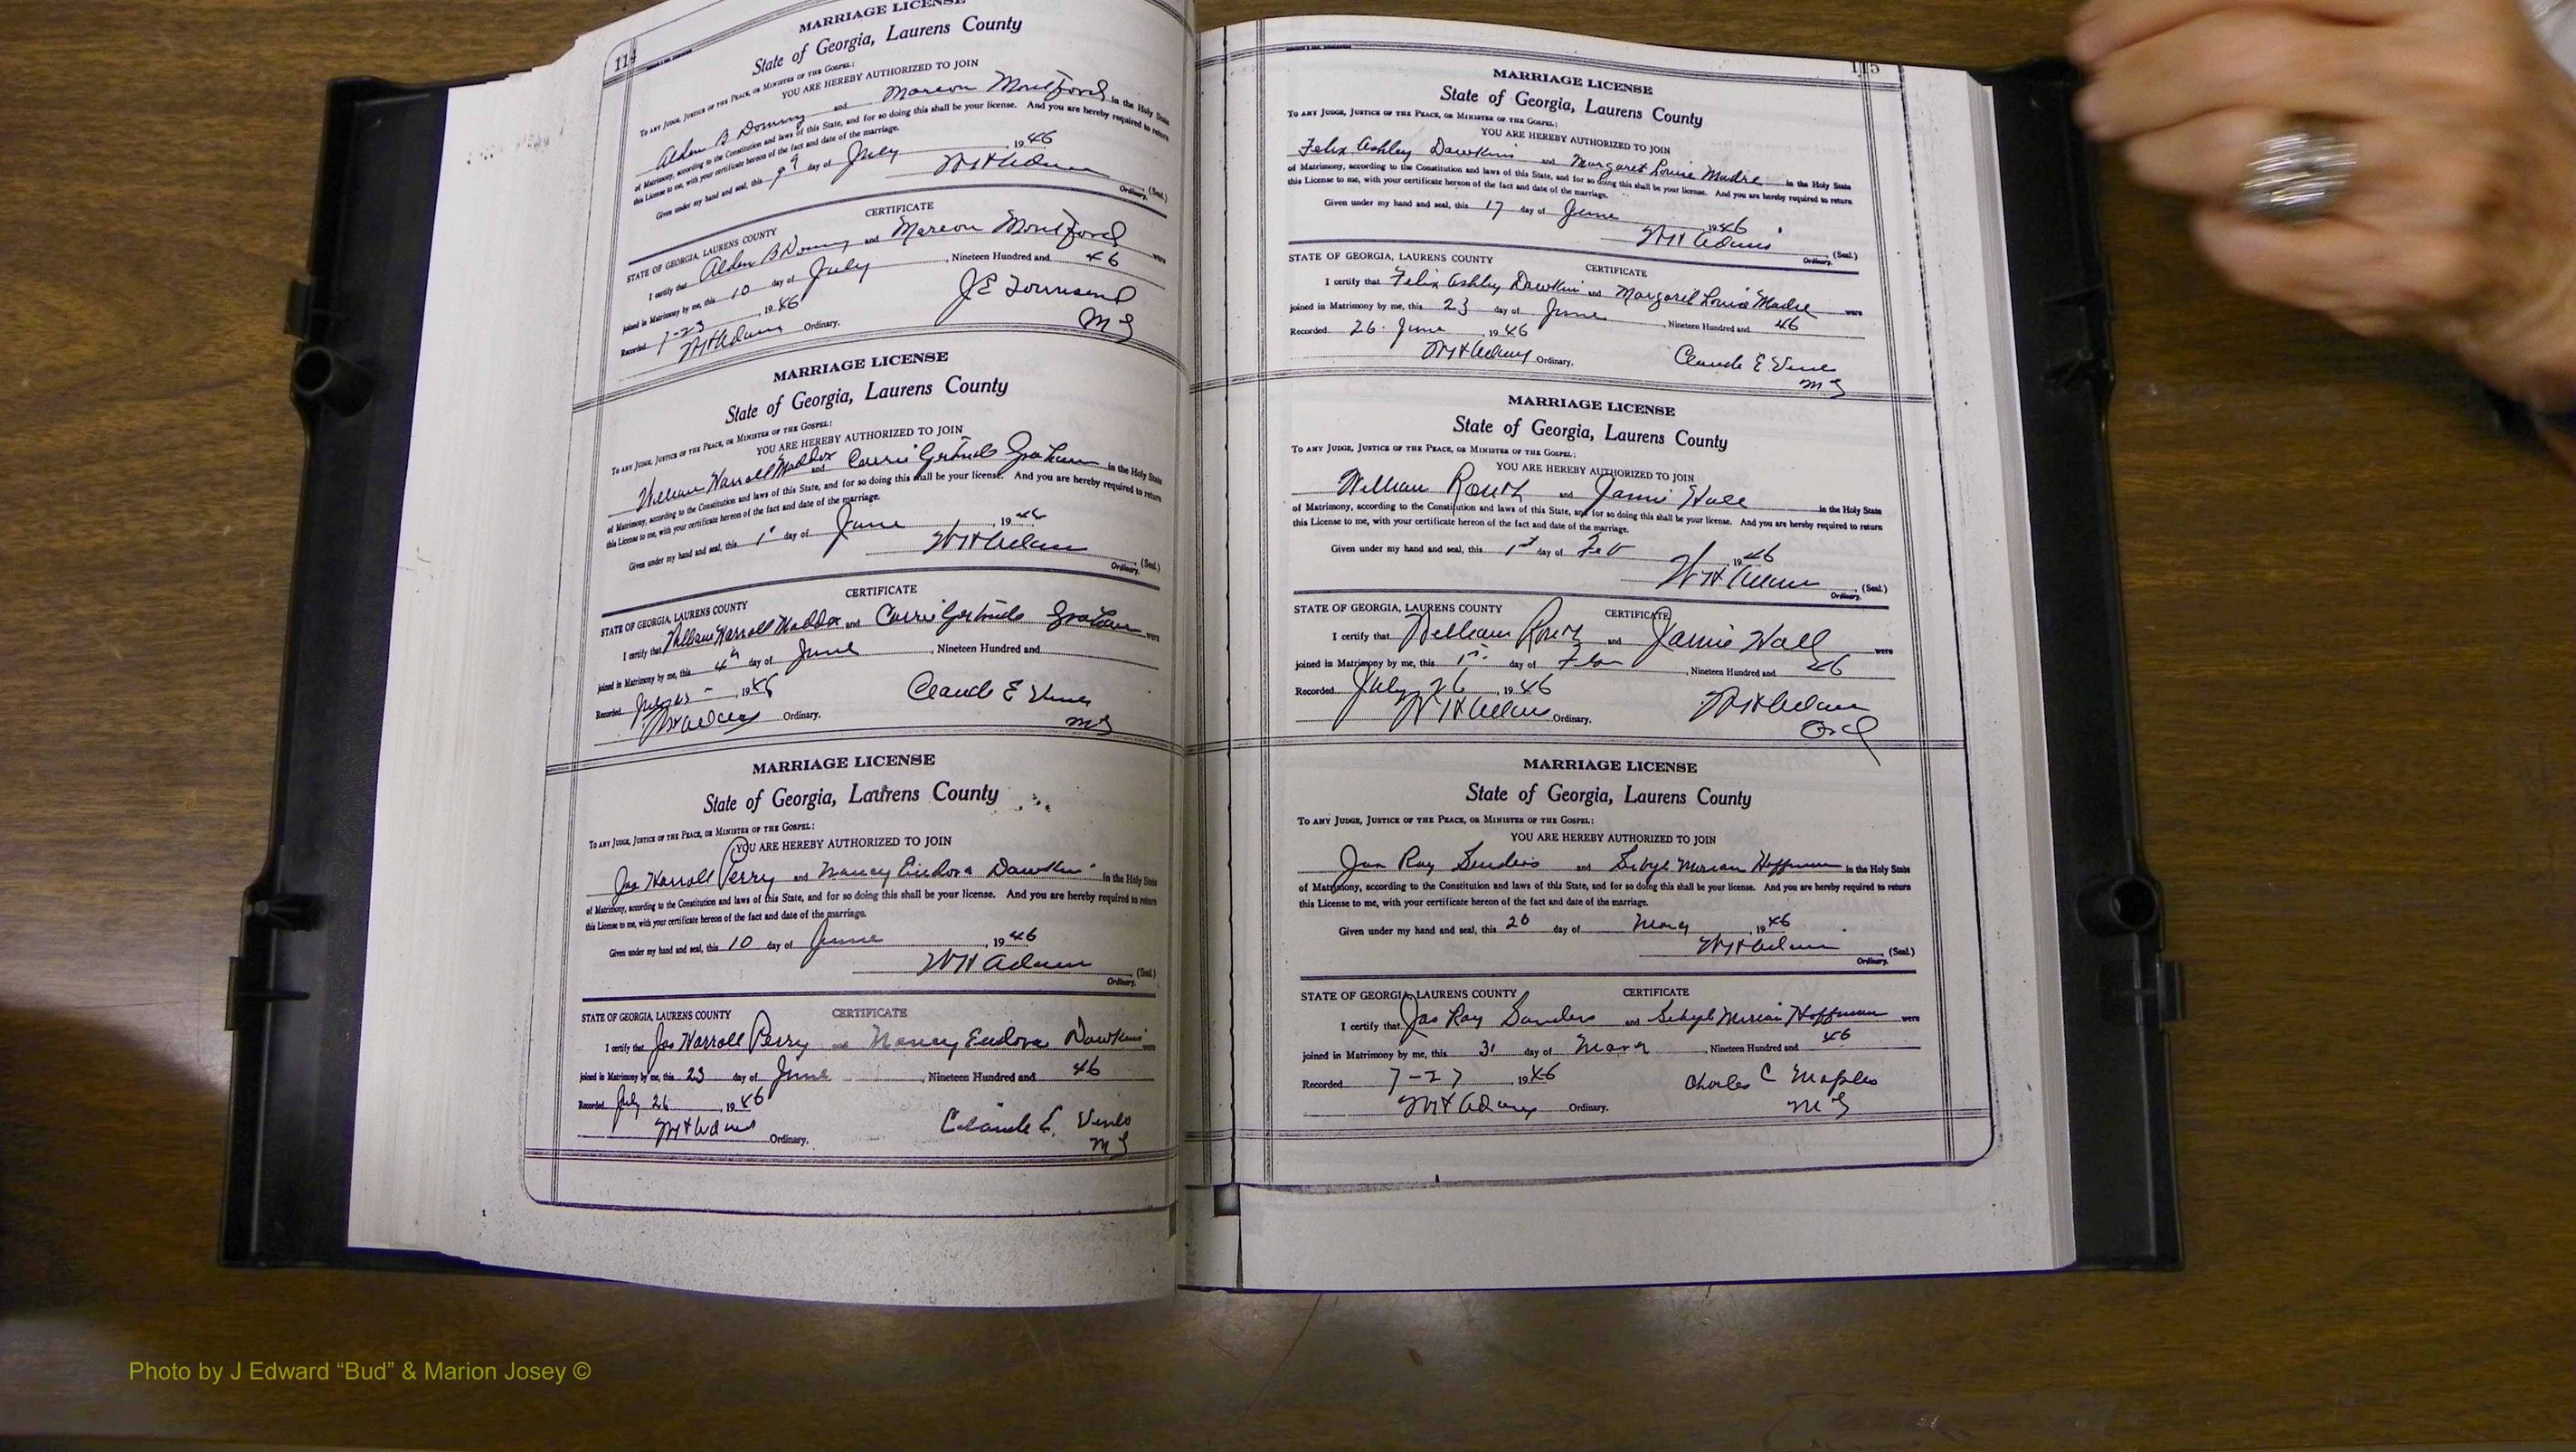 114
MARRIAGE LICENSE
State of Georgia, Laurens County
TO ANY JUDGE, JUSTICE OF THE PEACE, OR MINISTER OF THE GOSPEL:
YOU ARE HEREBY AUTHORIZED TO JOIN
Alden B Dominy and Mareon Montford in the Holy State
of Matrimony, according to the Constitution and laws of this State, and for so doing this shall be your license. And you are hereby required to return
this License to me, with your certificate hereon of the fact and date of the marriage.
Given under my hand and seal, this 9 day of July, 1946
WH Adams (Seal.)
Ordinary.
CERTIFICATE
STATE OF GEORGIA, LAURENS COUNTY
I certify that Alden B Dominy and Mareon Montford were
joined in Matrimony by me, this 10 day of July, Nineteen Hundred and 46
Recorded 7-23, 1946
WH Adams Ordinary.
J E Townsend
M G
MARRIAGE LICENSE
State of Georgia, Laurens County
TO ANY JUDGE, JUSTICE OF THE PEACE, OR MINISTER OF THE GOSPEL:
YOU ARE HEREBY AUTHORIZED TO JOIN
William Harroll Maddox and Carrie Gertrude Graham in the Holy State
of Matrimony, according to the Constitution and laws of this State, and for so doing this shall be your license. And you are hereby required to return
this License to me, with your certificate hereon of the fact and date of the marriage.
Given under my hand and seal, this 1 day of June, 1946
WH Adams (Seal.)
Ordinary.
CERTIFICATE
STATE OF GEORGIA, LAURENS COUNTY
I certify that William Harroll Maddox and Carrie Gertrude Graham were
joined in Matrimony by me, this 4th day of June, Nineteen Hundred and
Recorded, 1946
WH Adams Ordinary.
Claude E Vines
MG
MARRIAGE LICENSE
State of Georgia, Laurens County
TO ANY JUDGE, JUSTICE OF THE PEACE, OR MINISTER OF THE GOSPEL:
YOU ARE HEREBY AUTHORIZED TO JOIN
Jas Harroll Perry and Nancy Eudora Dawkins in the Holy State
of Matrimony, according to the Constitution and laws of this State, and for so doing this shall be your license. And you are hereby required to return
this License to me, with your certificate hereon of the fact and date of the marriage.
Given under my hand and seal, this 10 day of June, 1946
WH Adams (Seal)
Ordinary.
STATE OF GEORGIA, LAURENS COUNTY CERTIFICATE
I certify that Jas Harroll Perry and Nancy Eudora Dawkins were
joined in Matrimony by me, this 23 day of June, Nineteen Hundred and 46
Recorded July 26, 1946
WH Adams Ordinary.
Claude E. Vines
MG
115
MARRIAGE LICENSE
State of Georgia, Laurens County
TO ANY JUDGE, JUSTICE OF THE PEACE, OR MINISTER OF THE GOSPEL:
YOU ARE HEREBY AUTHORIZED TO JOIN
Felix Ashley Dawkins and Margaret Louise Madre in the Holy State
of Matrimony, according to the Constitution and laws of this State, and for so doing this shall be your license. And you are hereby required to return
this License to me, with your certificate hereon of the fact and date of the marriage.
Given under my hand and seal, this 17 day of June, 1946
WH Adams (Seal.)
Ordinary.
STATE OF GEORGIA, LAURENS COUNTY CERTIFICATE
I certify that Felix Ashley Dawkins and Margaret Louise Madre were
joined in Matrimony by me, this 23 day of June, Nineteen Hundred and 46
Recorded 26 June, 1946
WH Adams Ordinary.
Claude E Vines
MG
MARRIAGE LICENSE
State of Georgia, Laurens County
TO ANY JUDGE, JUSTICE OF THE PEACE, OR MINISTER OF THE GOSPEL:
YOU ARE HEREBY AUTHORIZED TO JOIN
William Routh and Jamie Hall in the Holy State
of Matrimony, according to the Constitution and laws of this State, and for so doing this shall be your license. And you are hereby required to return
this License to me, with your certificate hereon of the fact and date of the marriage.
Given under my hand and seal, this 1st day of Feb, 1946
WH Adams (Seal.)
Ordinary.
STATE OF GEORGIA, LAURENS COUNTY CERTIFICATE
I certify that William Routh and Jamie Hall were
joined in Matrimony by me, this 1st day of, Nineteen Hundred and 46
Recorded July 26, 1946
WH Adams Ordinary.
WH Adams
Ord
MARRIAGE LICENSE
State of Georgia, Laurens County
TO ANY JUDGE, JUSTICE OF THE PEACE, OR MINISTER OF THE GOSPEL:
YOU ARE HEREBY AUTHORIZED TO JOIN
Jas Ray Sanders and Sibyl Miriam Hoffman in the Holy State
of Matrimony, according to the Constitution and laws of this State, and for so doing this shall be your license. And you are hereby required to return
this License to me, with your certificate hereon of the fact and date of the marriage.
Given under my hand and seal, this 20 day of, 1946
WH Adams (Seal.)
Ordinary.
STATE OF GEORGIA, LAURENS COUNTY CERTIFICATE
I certify that Jas Ray Sanders and Sibyl Miriam Hoffman were
joined in Matrimony by me, this 31 day of, Nineteen Hundred and 46
Recorded 7-27, 1946
WH Adams Ordinary.
Charles C Maples
MG
Photo by J Edward “Bud” & Marion Josey ©